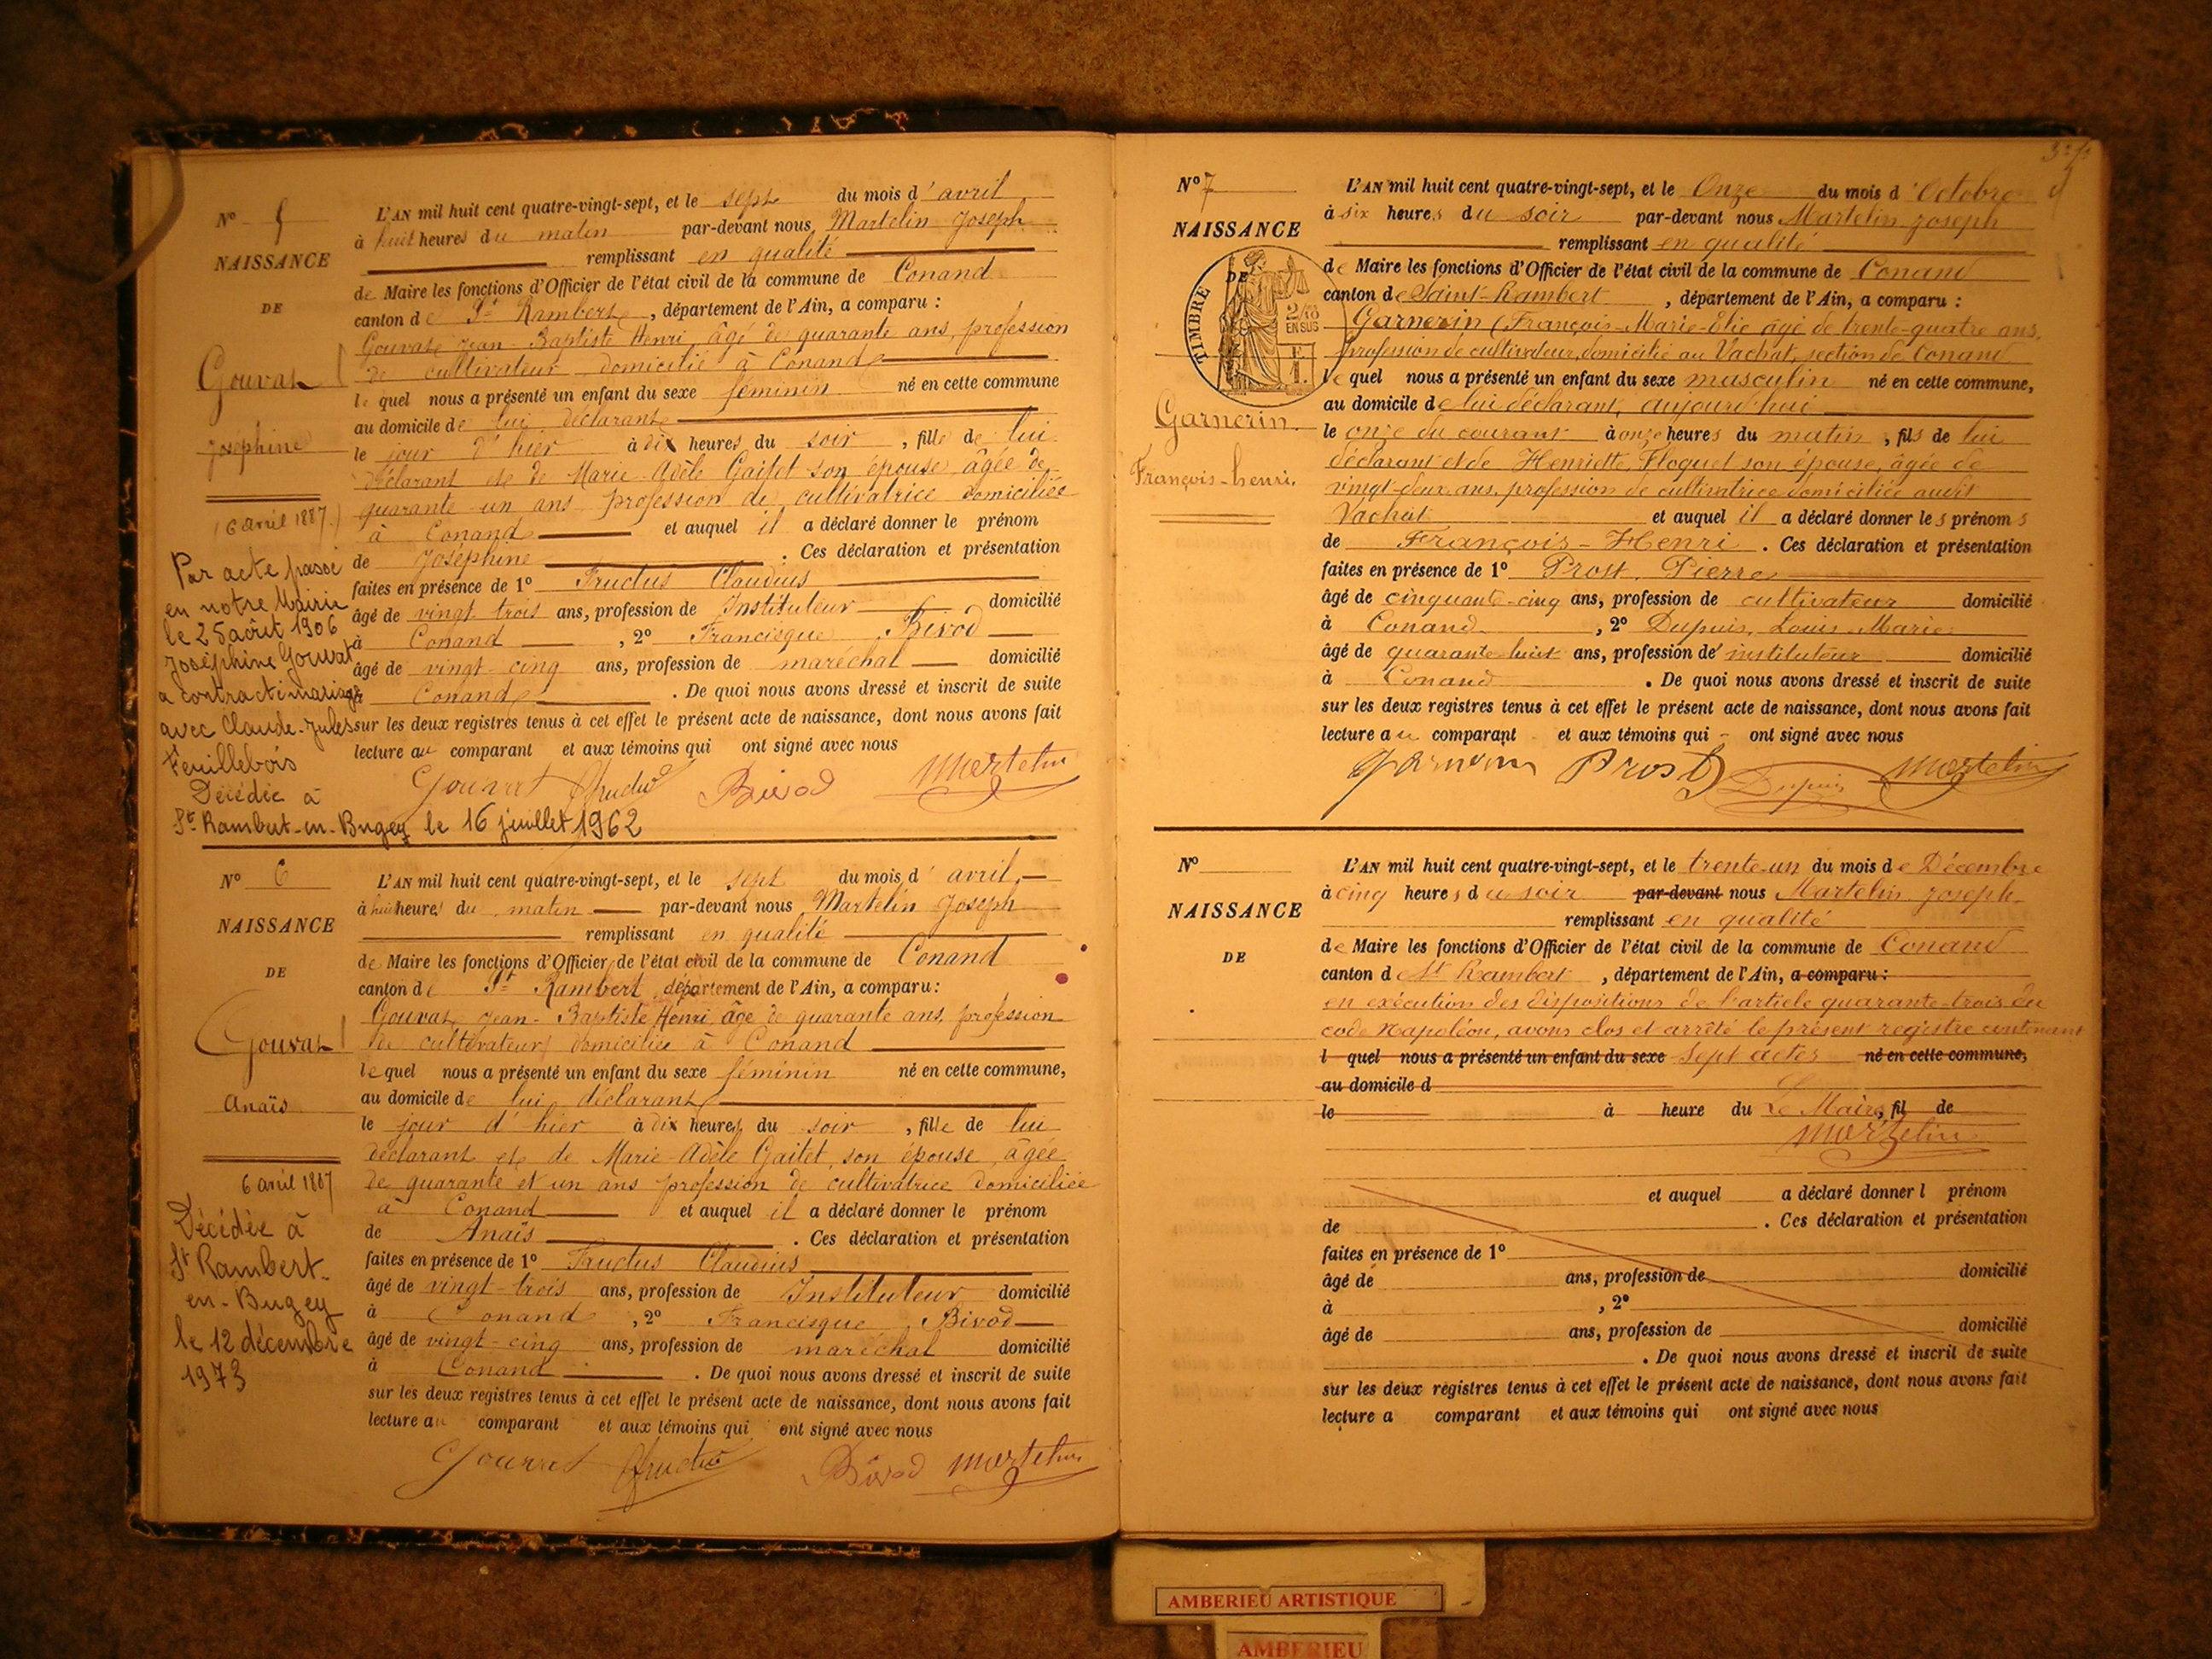 N° 5
NAISSANCE
DE
Gouvat
Joséphine
(6 avril 1887)
Par acte passé
en notre Mairie
le 25 août 1906
Joséphine Gouvat
a contracté mariage
avec Claude-Jules
Feuillebois
Décédée à
St Rambert-en-Bugey le 16 juillet 1962
L'AN mil huit cent quatre-vingt-sept, et le sept du mois d'avril
à huit heures du matin par-devant nous Martelin Joseph
remplissant en qualité
de Maire les fonctions d'Officier de l'état civil de la commune de Conand
canton de St Rambert, département de l'Ain, a comparu :
Gouvat Jean-Baptiste Henri, âgé de quarante ans, profession
de cultivateur domicilié à Conand
lequel nous a présenté un enfant du sexe féminin né en cette commune
au domicile de lui déclarant
le jour d'hier à dix heures du soir, fille de lui
déclarant et de Marie Adèle Gaitet son épouse, âgée de
quarante-un ans profession de cultivatrice domiciliée
à Conand et auquel il a déclaré donner le prénom
de Joséphine. Ces déclaration et présentation
faites en présence de 1° Fructus Claudius
âgé de vingt trois ans, profession de Instituteur domicilié
à Conand, 2° Francisque Bivod
âgé de vingt-cinq ans, profession de maréchal domicilié
à Conand. De quoi nous avons dressé et inscrit de suite
sur les deux registres tenus à cet effet le présent acte de naissance, dont nous avons fait
lecture au comparant et aux témoins qui ont signé avec nous
Gouvat Fructus Bivod Martelin
N° 6
NAISSANCE
DE
Gouvat
Anaïs
6 avril 1887
Décédée à
St Rambert-
en-Bugey
le 12 décembre
1973
L'AN mil huit cent quatre-vingt-sept, et le sept du mois d'avril
à huit heures du matin par-devant nous Martelin Joseph
remplissant en qualité
de Maire les fonctions d'Officier de l'état civil de la commune de Conand
canton de St Rambert, département de l'Ain, a comparu :
Gouvat Jean-Baptiste Henri, âgé de quarante ans, profession
de cultivateur, domicilié à Conand
lequel nous a présenté un enfant du sexe féminin né en cette commune,
au domicile de lui déclarant
le jour d'hier à dix heures du soir, fille de lui
déclarant et de Marie Adèle Gaitet, son épouse, âgée
de quarante et un ans profession de cultivatrice domiciliée
à Conand et auquel il a déclaré donner le prénom
de Anaïs. Ces déclaration et présentation
faites en présence de 1° Fructus Claudius
âgé de vingt-trois ans, profession de Instituteur domicilié
à Conand, 2° Francisque Bivod
âgé de vingt-cinq ans, profession de maréchal domicilié
à Conand. De quoi nous avons dressé et inscrit de suite
sur les deux registres tenus à cet effet le présent acte de naissance, dont nous avons fait
lecture au comparant et aux témoins qui ont signé avec nous
Gouvat Fructus Bivod Martelin
N° 7
NAISSANCE
DE
TIMBRE
2/10
EN SUS
Garnerin
François-henri.
L'AN mil huit cent quatre-vingt-sept, et le Onze du mois d'Octobre
à six heures du soir par-devant nous Martelin Joseph
remplissant en qualité
de Maire les fonctions d'Officier de l'état civil de la commune de Conand
canton de Saint-Rambert, département de l'Ain, a comparu :
Garnerin (François-Marie-Elie âgé de trente-quatre ans,
profession de cultivateur, domicilié au Vachat, section de Conand
lequel nous a présenté un enfant du sexe masculin né en cette commune,
au domicile de lui déclarant, aujourd'hui
le onze du courant à onze heures du matin, fils de lui
déclarant et de Henriette Floquet son épouse, âgée de
vingt-deux ans, profession de cultivatrice domiciliée audit
Vachat et auquel il a déclaré donner les prénoms
de François-Henri. Ces déclaration et présentation
faites en présence de 1° Prost Pierre
âgé de cinquante-cinq ans, profession de cultivateur domicilié
à Conand, 2° Dupuis, Louis Marie
âgé de quarante huit ans, profession de instituteur domicilié
à Conand. De quoi nous avons dressé et inscrit de suite
sur les deux registres tenus à cet effet le présent acte de naissance, dont nous avons fait
lecture au comparant et aux témoins qui ont signé avec nous
Garnerin Prost Dupuis Martelin
N°
NAISSANCE
DE
L'AN mil huit cent quatre-vingt-sept, et le trente-un du mois de Décembre
à cinq heures du soir par-devant nous Martelin Joseph
remplissant en qualité
de Maire les fonctions d'Officier de l'état civil de la commune de Conand
canton de St Rambert, département de l'Ain, a comparu :
en exécution des dispositions de l'article quarante-trois du
code Napoléon, avons clos et arrêté le présent registre contenant
l quel nous a présenté un enfant du sexe Sept actes né en cette commune,
au domicile d
le à heure du Le Maire, fil de
Martelin
et auquel a déclaré donner l prénom
de . Ces déclaration et présentation
faites en présence de 1°
âgé de ans, profession de domicilié
à , 2°
âgé de ans, profession de domicilié
. De quoi nous avons dressé et inscrit de suite
sur les deux registres tenus à cet effet le présent acte de naissance, dont nous avons fait
lecture a comparant et aux témoins qui ont signé avec nous
AMBERIEU ARTISTIQUE
AMBERIEU